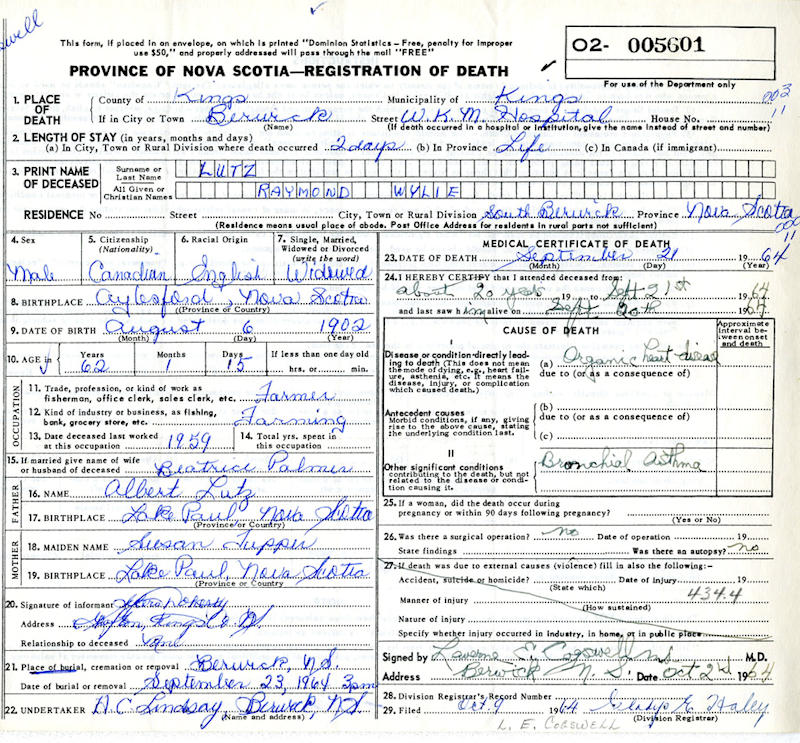 This form, if placed in an envelope, on which is printed "Dominion Statistics - Free, penalty for improper
use $50," and properly addressed will pass through the mail "FREE"
O2- 005601
PROVINCE OF NOVA SCOTIA—REGISTRATION OF DEATH
For use of the Department only
003
11
1. PLACE OF DEATH County of Kings Municipality of Kings
If in City or Town Berwick Street W. K. M. Hospital House No.
(Name) (If death occurred in a hospital or institution, give the name instead of street and number)
2. LENGTH OF STAY (in years, months and days)
(a) In City, Town or Rural Division where death occurred 2 days (b) In Province Life (c) In Canada (if immigrant)
3. PRINT NAME OF DECEASED Surname or Last Name LUTZ
All Given or Christian Names RAYMOND WYLIE
RESIDENCE No Street City, Town or Rural Division South Berwick Province Nova Scotia
(Residence means usual place of abode. Post Office Address for residents in rural parts not sufficient)
4. Sex Male
5. Citizenship (Nationality) Canadian
6. Racial Origin English
7. Single, Married, Widowed or Divorced (write the word) Widowed
8. BIRTHPLACE Aylesford, Nova Scotia
(Province or Country)
9. DATE OF BIRTH August 6 1902
(Month) (Day) (Year)
10. AGE in Years 62 Months 1 Days 15 If less than one day old hrs. or min.
OCCUPATION
11. Trade, profession, or kind of work as fisherman, office clerk, sales clerk, etc. Farmer
12. Kind of industry or business, as fishing, bank, grocery store, etc. Farming
13. Date deceased last worked at this occupation 1959
14. Total yrs. spent in this occupation
15. If married give name of wife or husband of deceased Beatrice Palmer
FATHER
16. NAME Albert Lutz
17. BIRTHPLACE Lake Paul, Nova Scotia
(Province or Country)
MOTHER
18. MAIDEN NAME Susan Tupper
19. BIRTHPLACE Lake Paul, Nova Scotia
(Province or Country)
20. Signature of informant Doherty
Address Grafton, Kings Co N.S.
Relationship to deceased
21. Place of burial, cremation or removal Berwick, N.S.
Date of burial or removal September 23, 1964 3pm
22. UNDERTAKER A C Lindsay, Berwick, N.S.
(Name and address)
MEDICAL CERTIFICATE OF DEATH
23. DATE OF DEATH September 21 1964
(Month) (Day) (Year)
24. I HEREBY CERTIFY that I attended deceased from:
about 20 years 19 to Sept 21st 1964
and last saw him alive on Sept 20th 1964
CAUSE OF DEATH
Approximate interval between onset and death
I
Disease or condition directly leading to death (This does not mean the mode of dying, e.g., heart failure, asthenia, etc. It means the disease, injury, or complication which caused death.)
(a) Organic heart disease
due to (or as a consequence of)
Antecedent causes
Morbid conditions, if any, giving rise to the above cause, stating the underlying condition last.
(b)
due to (or as a consequence of)
(c)
II
Other significant conditions contributing to the death, but not related to the disease or condition causing it.
Bronchial Asthma
25. If a woman, did the death occur during pregnancy or within 90 days following pregnancy?
(Yes or No)
26. Was there a surgical operation? no Date of operation 19
State findings Was there an autopsy? no
27. If death was due to external causes (violence) fill in also the following:-
Accident, suicide or homicide? Date of injury 19
(State which)
434.4
Manner of injury
(How sustained)
Nature of injury
Specify whether injury occurred in industry, in home, or in public place
Signed by Laverne E. Cogswell M.D.
Address Berwick N.S. Date Oct 2nd 1964
28. Division Registrar's Record Number
29. Filed Oct 9 1964 Gladys E. Haley
(Division Registrar)
L. E. COGSWELL